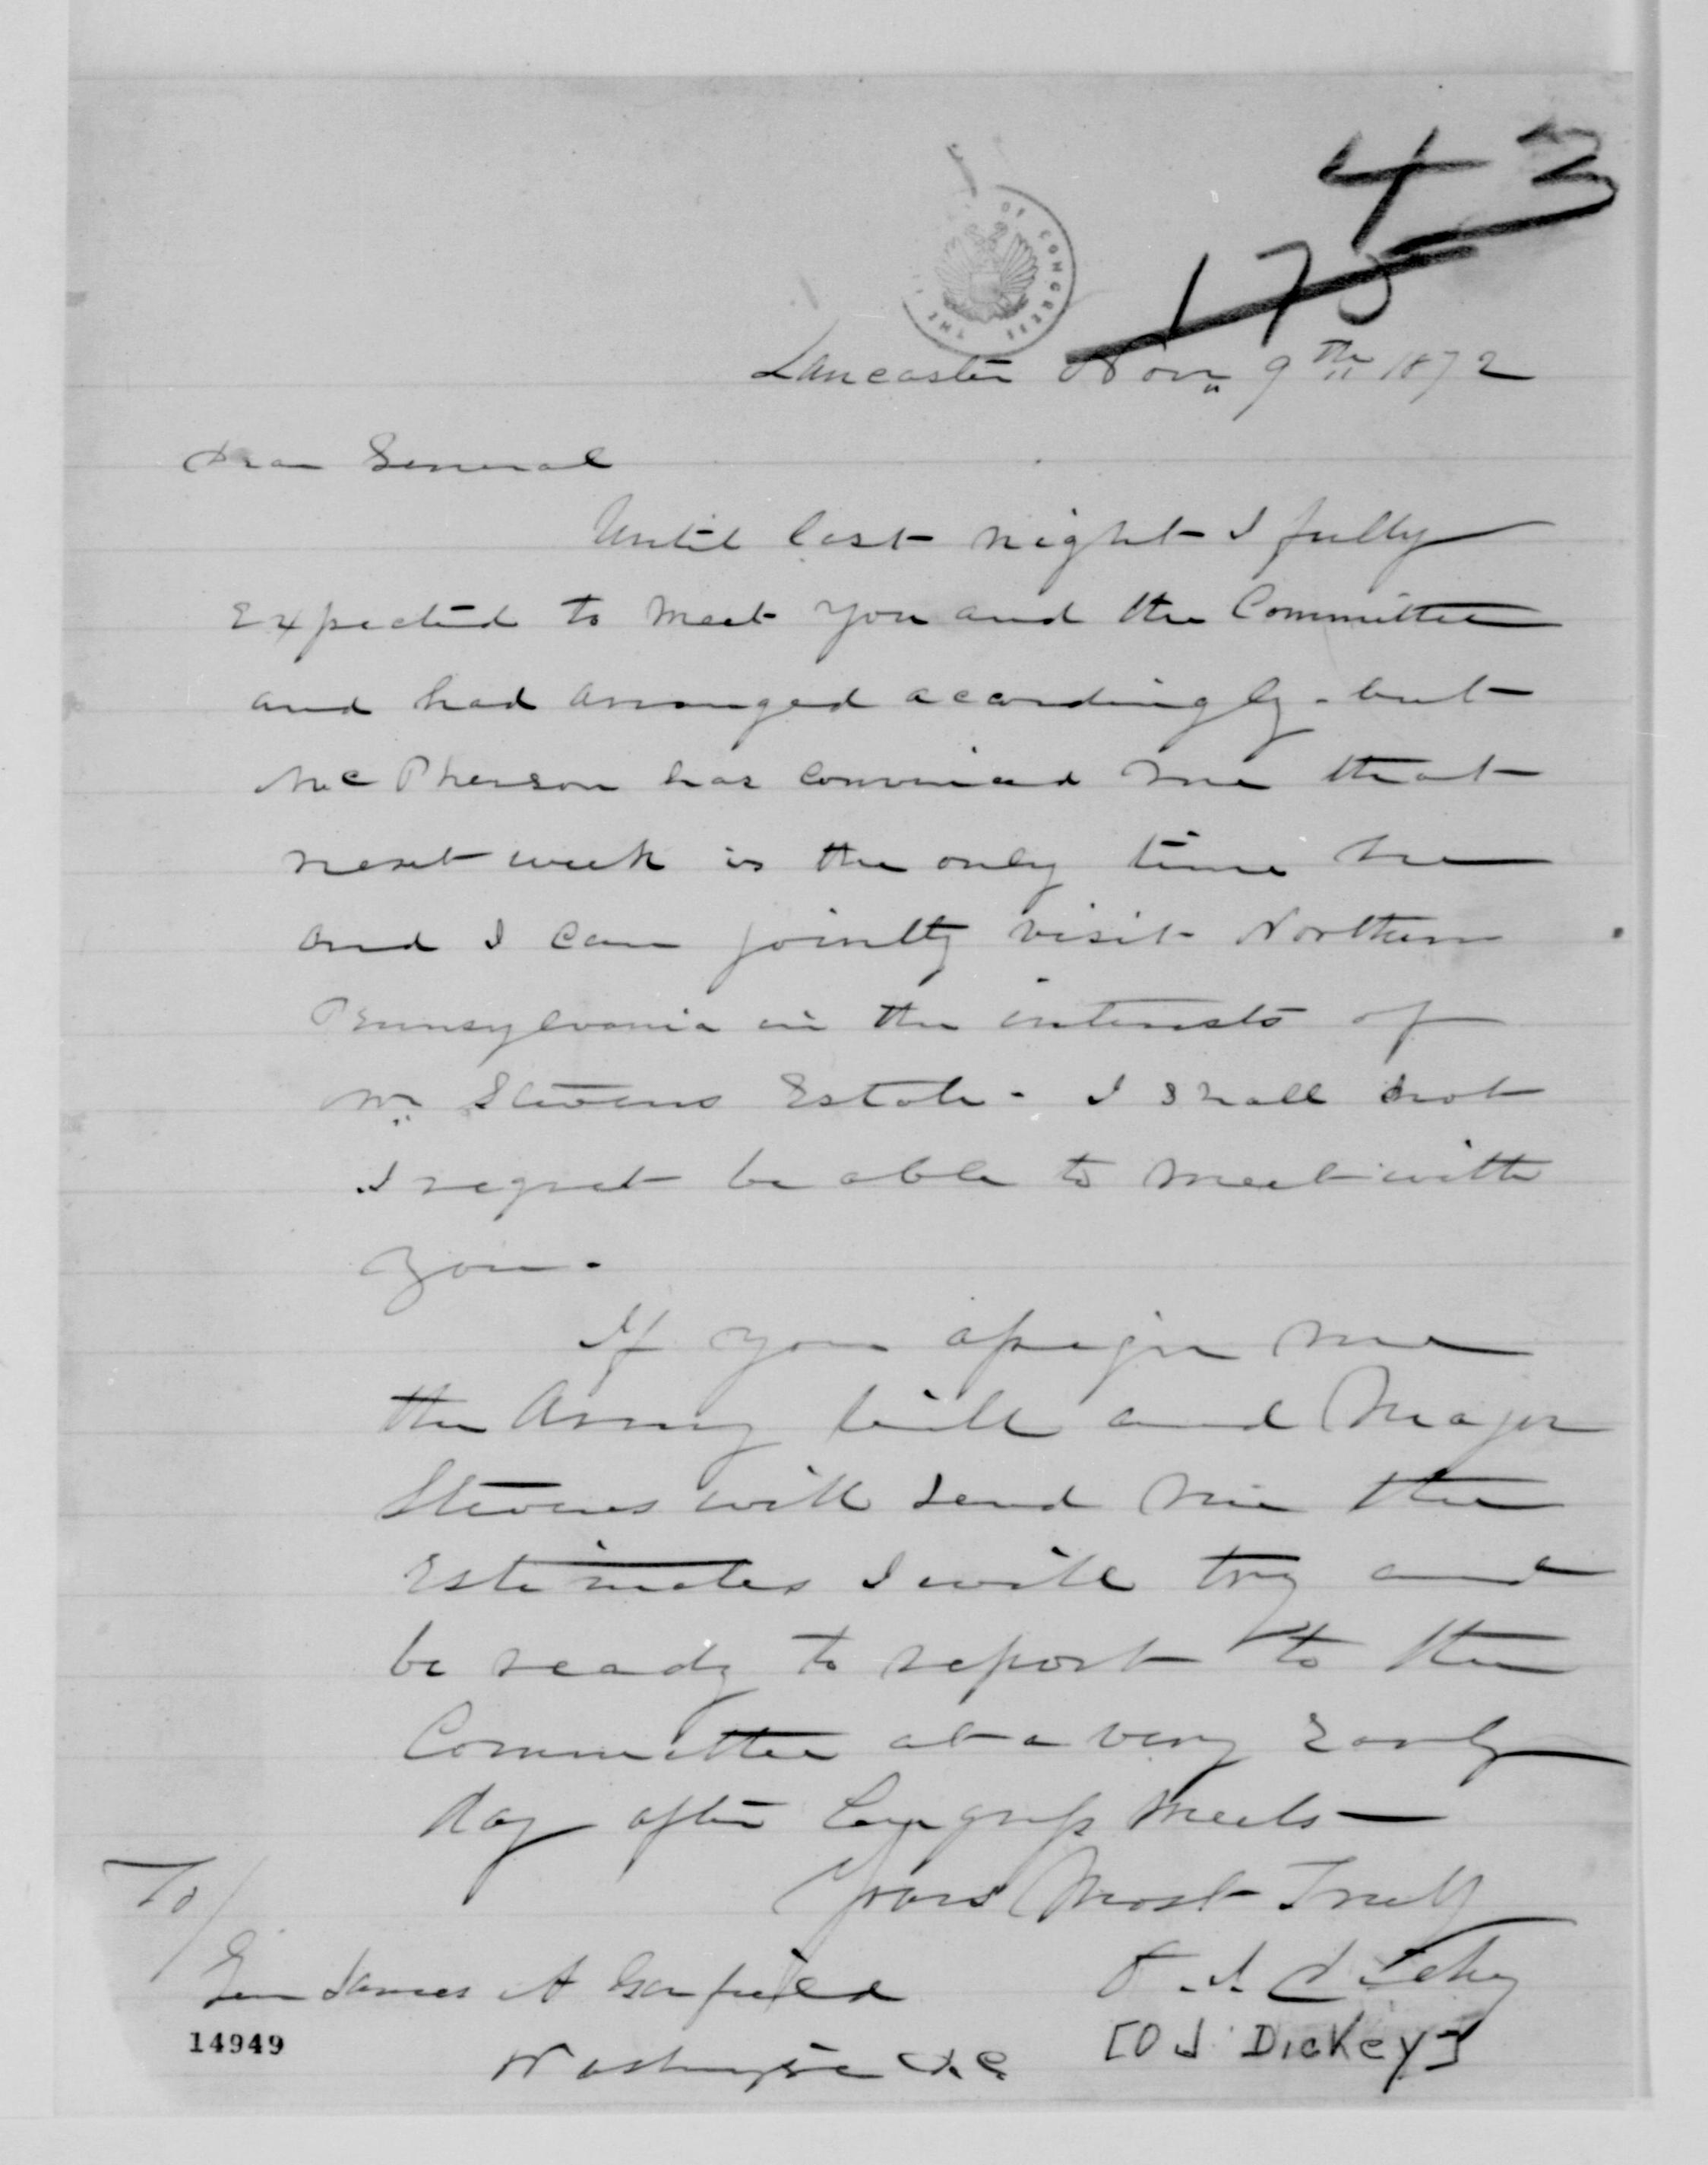 43
175
THE OF CONGRESS
Lancaster Nov 9th 1872
Dear General
Until last night I fully
Expected to meet you and the Committee
and had arranged acordingly - but
McPherson has convinced me that
next week is the only time he
and I can jointly visit Northern
Pennsylvania in the interests of
Mr Stevens Estate - I shall not
I regret be able to meet with
you.
If you assign me
the Army bill and Major
Stevens will send me the
Estimates I will try and
be ready to report to the
Committee at a very Early
day after Congress meets -
Yours Most Truly
O. J. Dickey
To/
Gen James A Garfield
Washington D.C.
[O J Dickey]
14949